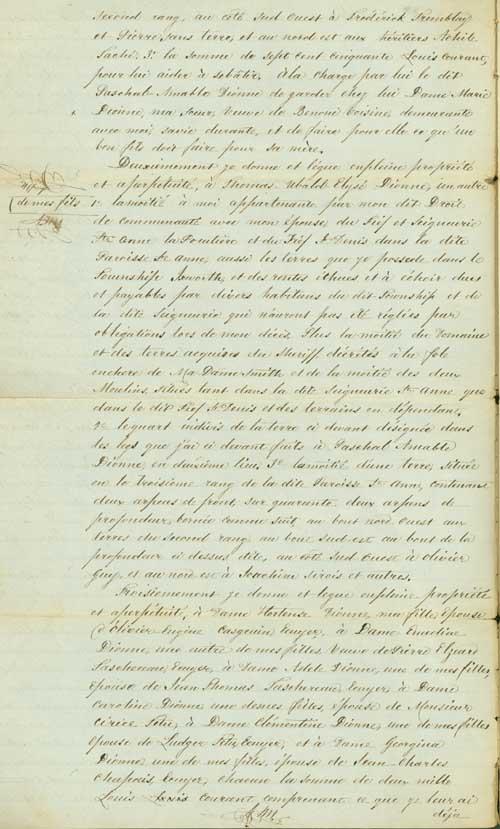 second rang, au côté Sud Ouest à Frédérick Tremblay
et Pierre sans terre, et au nord est aux héritiers Achile
Taché. 3º la somme de sept cent cinquante Louis courant,
pour lui aider à se bâtir. à la charge par lui le dit
Paschal Amable Dionne de garder chez lui Dame Marie
Dionne, ma sœur, Veuve de Benoni Voisine, demeurante
avec moi, sa vie durante, et de faire pour elle ce qu'un
bon fils doit faire pour sa mère.
Deuxiemement je donne et légue enpleine propriété
et apurpétuité, à Thomas Ubald Elysé Dionne, un autre
de mes fils
1º la moitié à moi appartenante par mon dit Droit
de communauté avec mon épouse, du Fief et Seigneurie
Ste Anne la Pocatière et du Fief St Denis dans la dite
Paroisse Ste Anne, aussi les terres que je possede dans le
Township Ixworth, et des rentes échues et à échoir dues
et payables par divers habitans du dit Township et de
la dite Seigneurie qui n'auront pas été réglées par
obligations lors de mon décès. Plus la moitié du Domaine
et des terres acquises du Sheriff décrétés à la fole
enchere de Ma Dame Smith et de la moitié des deux
Moulins, situés tant dans la dite Seigneurie Ste Anne que
dans le dit Fief St Denis et des terrains en dépendant,
2º le quart indivis de la terre ci devant désignée dans
les legs que j'ai ci devant faits à Paschal Amable
Dionne, en deuxième lieu, 3º la moitié d'une terre, située
en le troisième rang de la dite Paroisse Ste Anne, contenant
deux arpens de front, sur quarante deux arpens de
profondeur, bornée comme suit, au bout nord Ouest aux
terres du second rang, au bout sud est au bout de la
profondeur ci dessus dite, au côté Sud Ouest à Olivier
Guy, et au nord est à Joachim Sirois et autres.
Troisiemement je donne et legue enpleine propriété
et apurpétuité, à Dame Hortense Dionne, ma fille, épouse
d'Olivier Eugène Casgrain Ecuyer, à Dame Emeline
Dionne, une autre de mes filles, Veuve de Pierre Elzéard
Taschereau, Ecuyer, à Dame Adele Dionne, une de mes filles,
épouse de Jean Thomas Taschereau, Ecuyer, à Dame
Caroline Dionne, une de mes filles, épouse de Monsieur
Cirice Têtu, à Dame Clémentine Dionne, une de mes filles
épouse de Ludger Têtu, Ecuyer, et à Dame Georgina
Dionne, une de mes filles, épouse de Jean Charles
Chapais, Ecuyer, chacune la somme de deux mille
Louis Louis courant comprenant ce que je leur ai
déjà